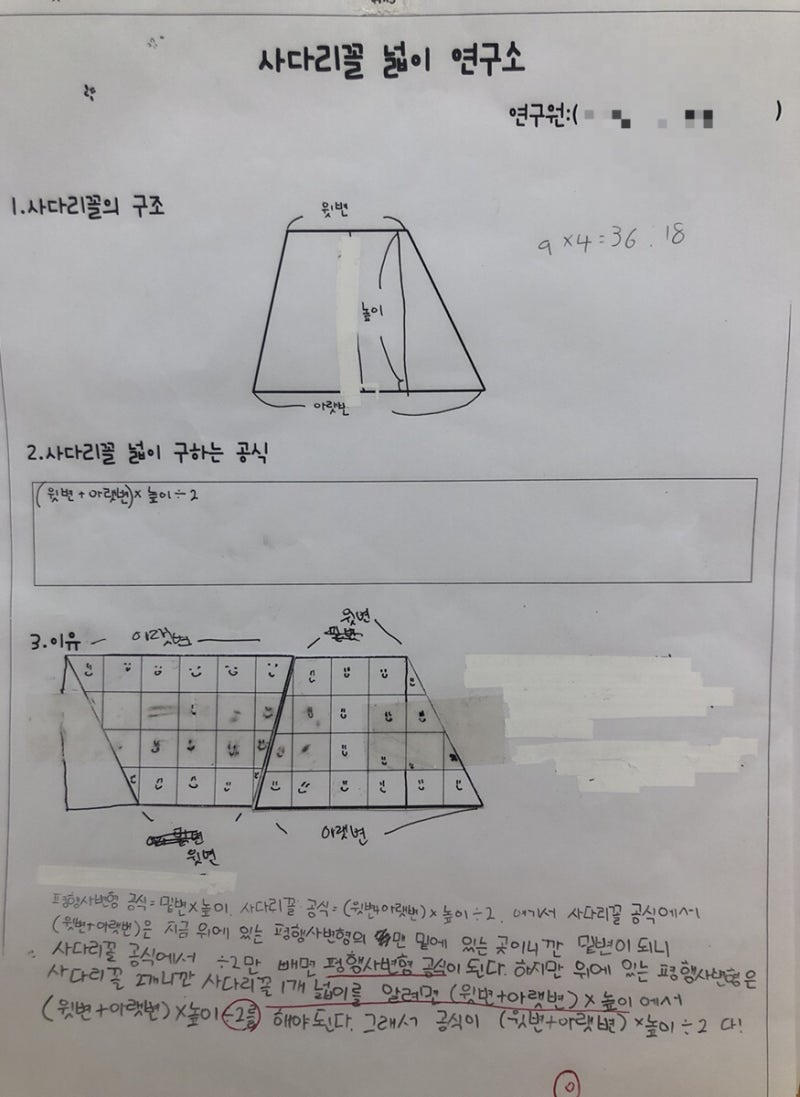 사다리꼴 넓이 연구소
연구원:( )
1.사다리꼴의 구조
윗변
9×4=36 . 18
높이
아랫변
2.사다리꼴 넓이 구하는 공식
(윗변+아랫변)×높이÷2
3.이유
아랫변
윗변
윗변
아랫변
평행사변형 공식=밑변×높이. 사다리꼴 공식=(윗변+아랫변)×높이÷2. 여기서 사다리꼴 공식에서
(윗변+아랫변)은 지금 위에 있는 평행사변형의 맨 밑에 있는 곳이니깐 밑변이 되니
사다리꼴 공식에서 ÷2만 빼면 평행사변형 공식이 된다. 하지만 위에 있는 평행사변형은
사다리꼴 2개니깐 사다리꼴 1개 넓이를 알려면 (윗변+아랫변)×높이에서
(윗변+아랫변)×높이÷2를 해야된다. 그래서 공식이 (윗변+아랫변)×높이÷2 다!